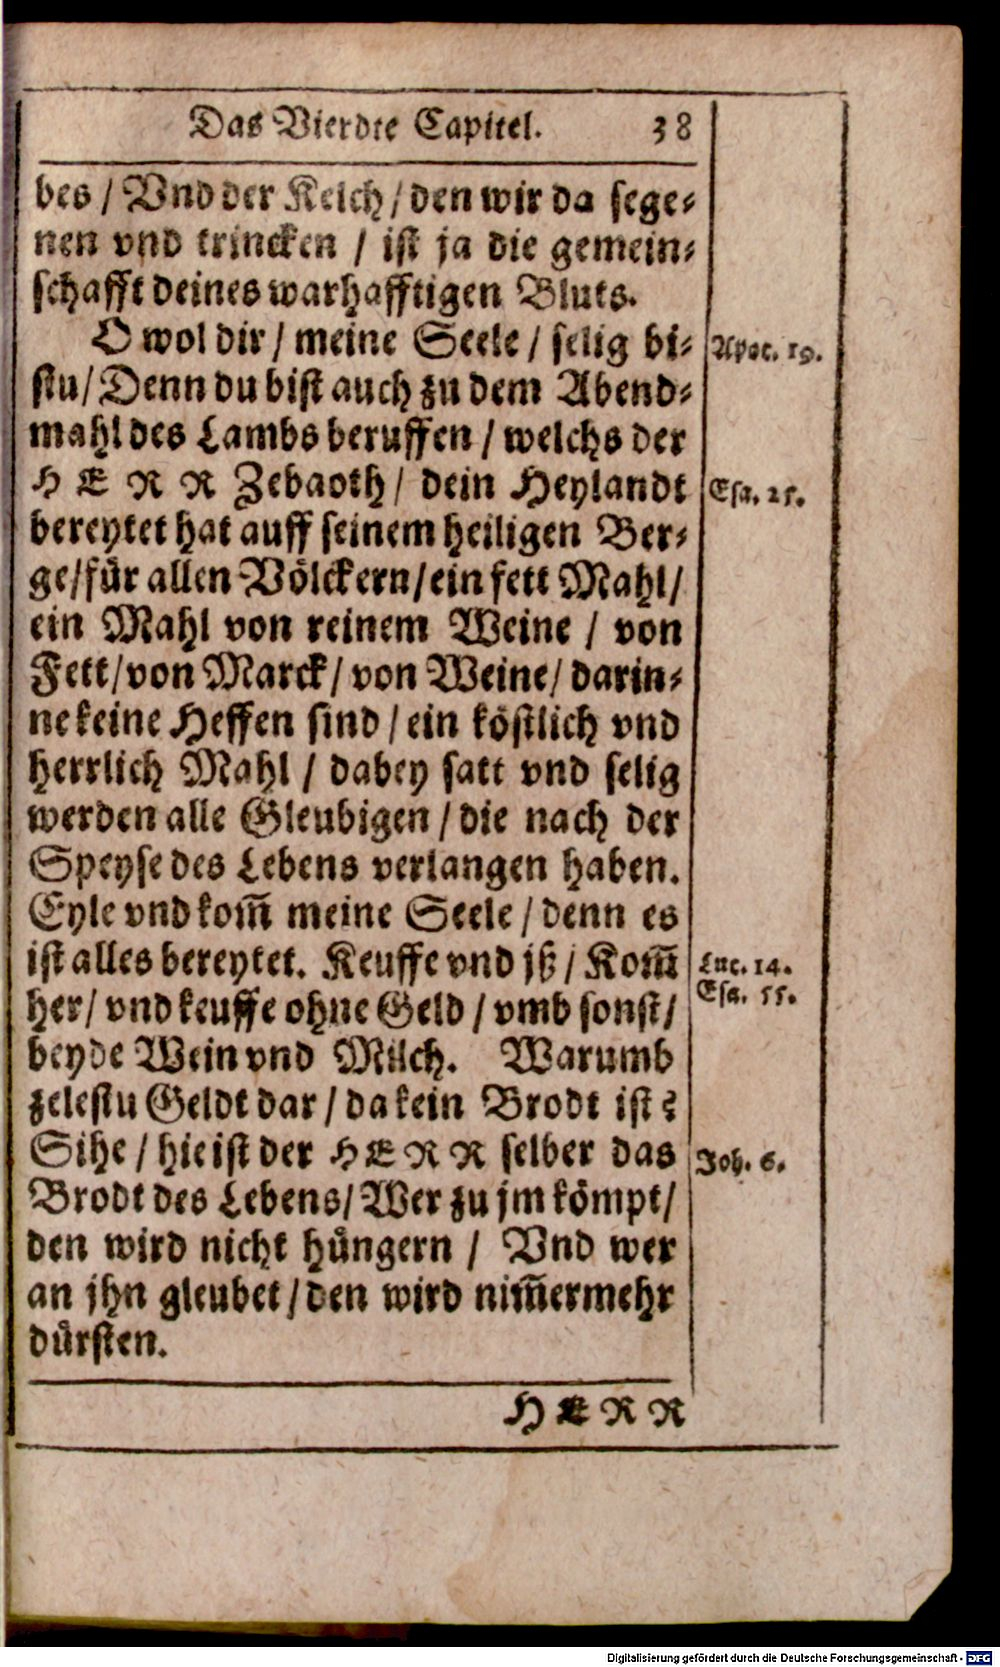 Das Vierdte Capitel. 38
bes / Vnd der Kelch / den wir da sege-
nen vnd trincken / ist ja die gemein-
schafft deines warhafftigen Bluts.
O wol dir / meine Seele / selig bi- Apoc. 19.
stu / Denn du bist auch zu dem Abend-
mahl des Lambs beruffen / welchs der
HERR Zebaoth / dein Heylandt Esa. 25.
bereytet hat auff seinem heiligen Ber-
ge / fuͤr allen Voͤlckern / ein fett Mahl /
ein Mahl von reinem Weine / von
Fett / von Marck / von Weine / darin-
ne keine Heffen sind / ein koͤstlich vnd
herrlich Mahl / dabey satt vnd selig
werden alle Gleubigen / die nach der
Speyse des Lebens verlangen haben.
Eyle vnd kom̃ meine Seele / denn es
ist alles bereytet. Keuffe vnd jß / Kom̃ Luc. 14.
her / vnd keuffe ohne Geld / vmb sonst / Esa. 55.
beyde Wein vnd Milch. Warumb
zelestu Geldt dar / da kein Brodt ist?
Sihe / hie ist der HERR selber das Joh. 6.
Brodt des Lebens / Wer zu jm koͤmpt /
den wird nicht huͤngern / Vnd wer
an jhn gleubet / den wird nim̃ermehr
duͤrsten.
HERR
Digitalisierung gefördert durch die Deutsche Forschungsgemeinschaft - DFG